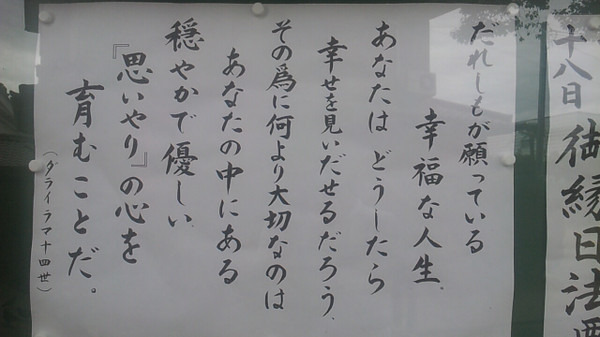 十八日 御縁日法要
だれしもが願っている
幸福な人生、
あなたは どうしたら
幸せを見いだせるだろう、
その為に何より大切なのは
あなたの中にある
穏やかで優しい
『思いやり』の心を
育むことだ。
(ダライラマ十四世)